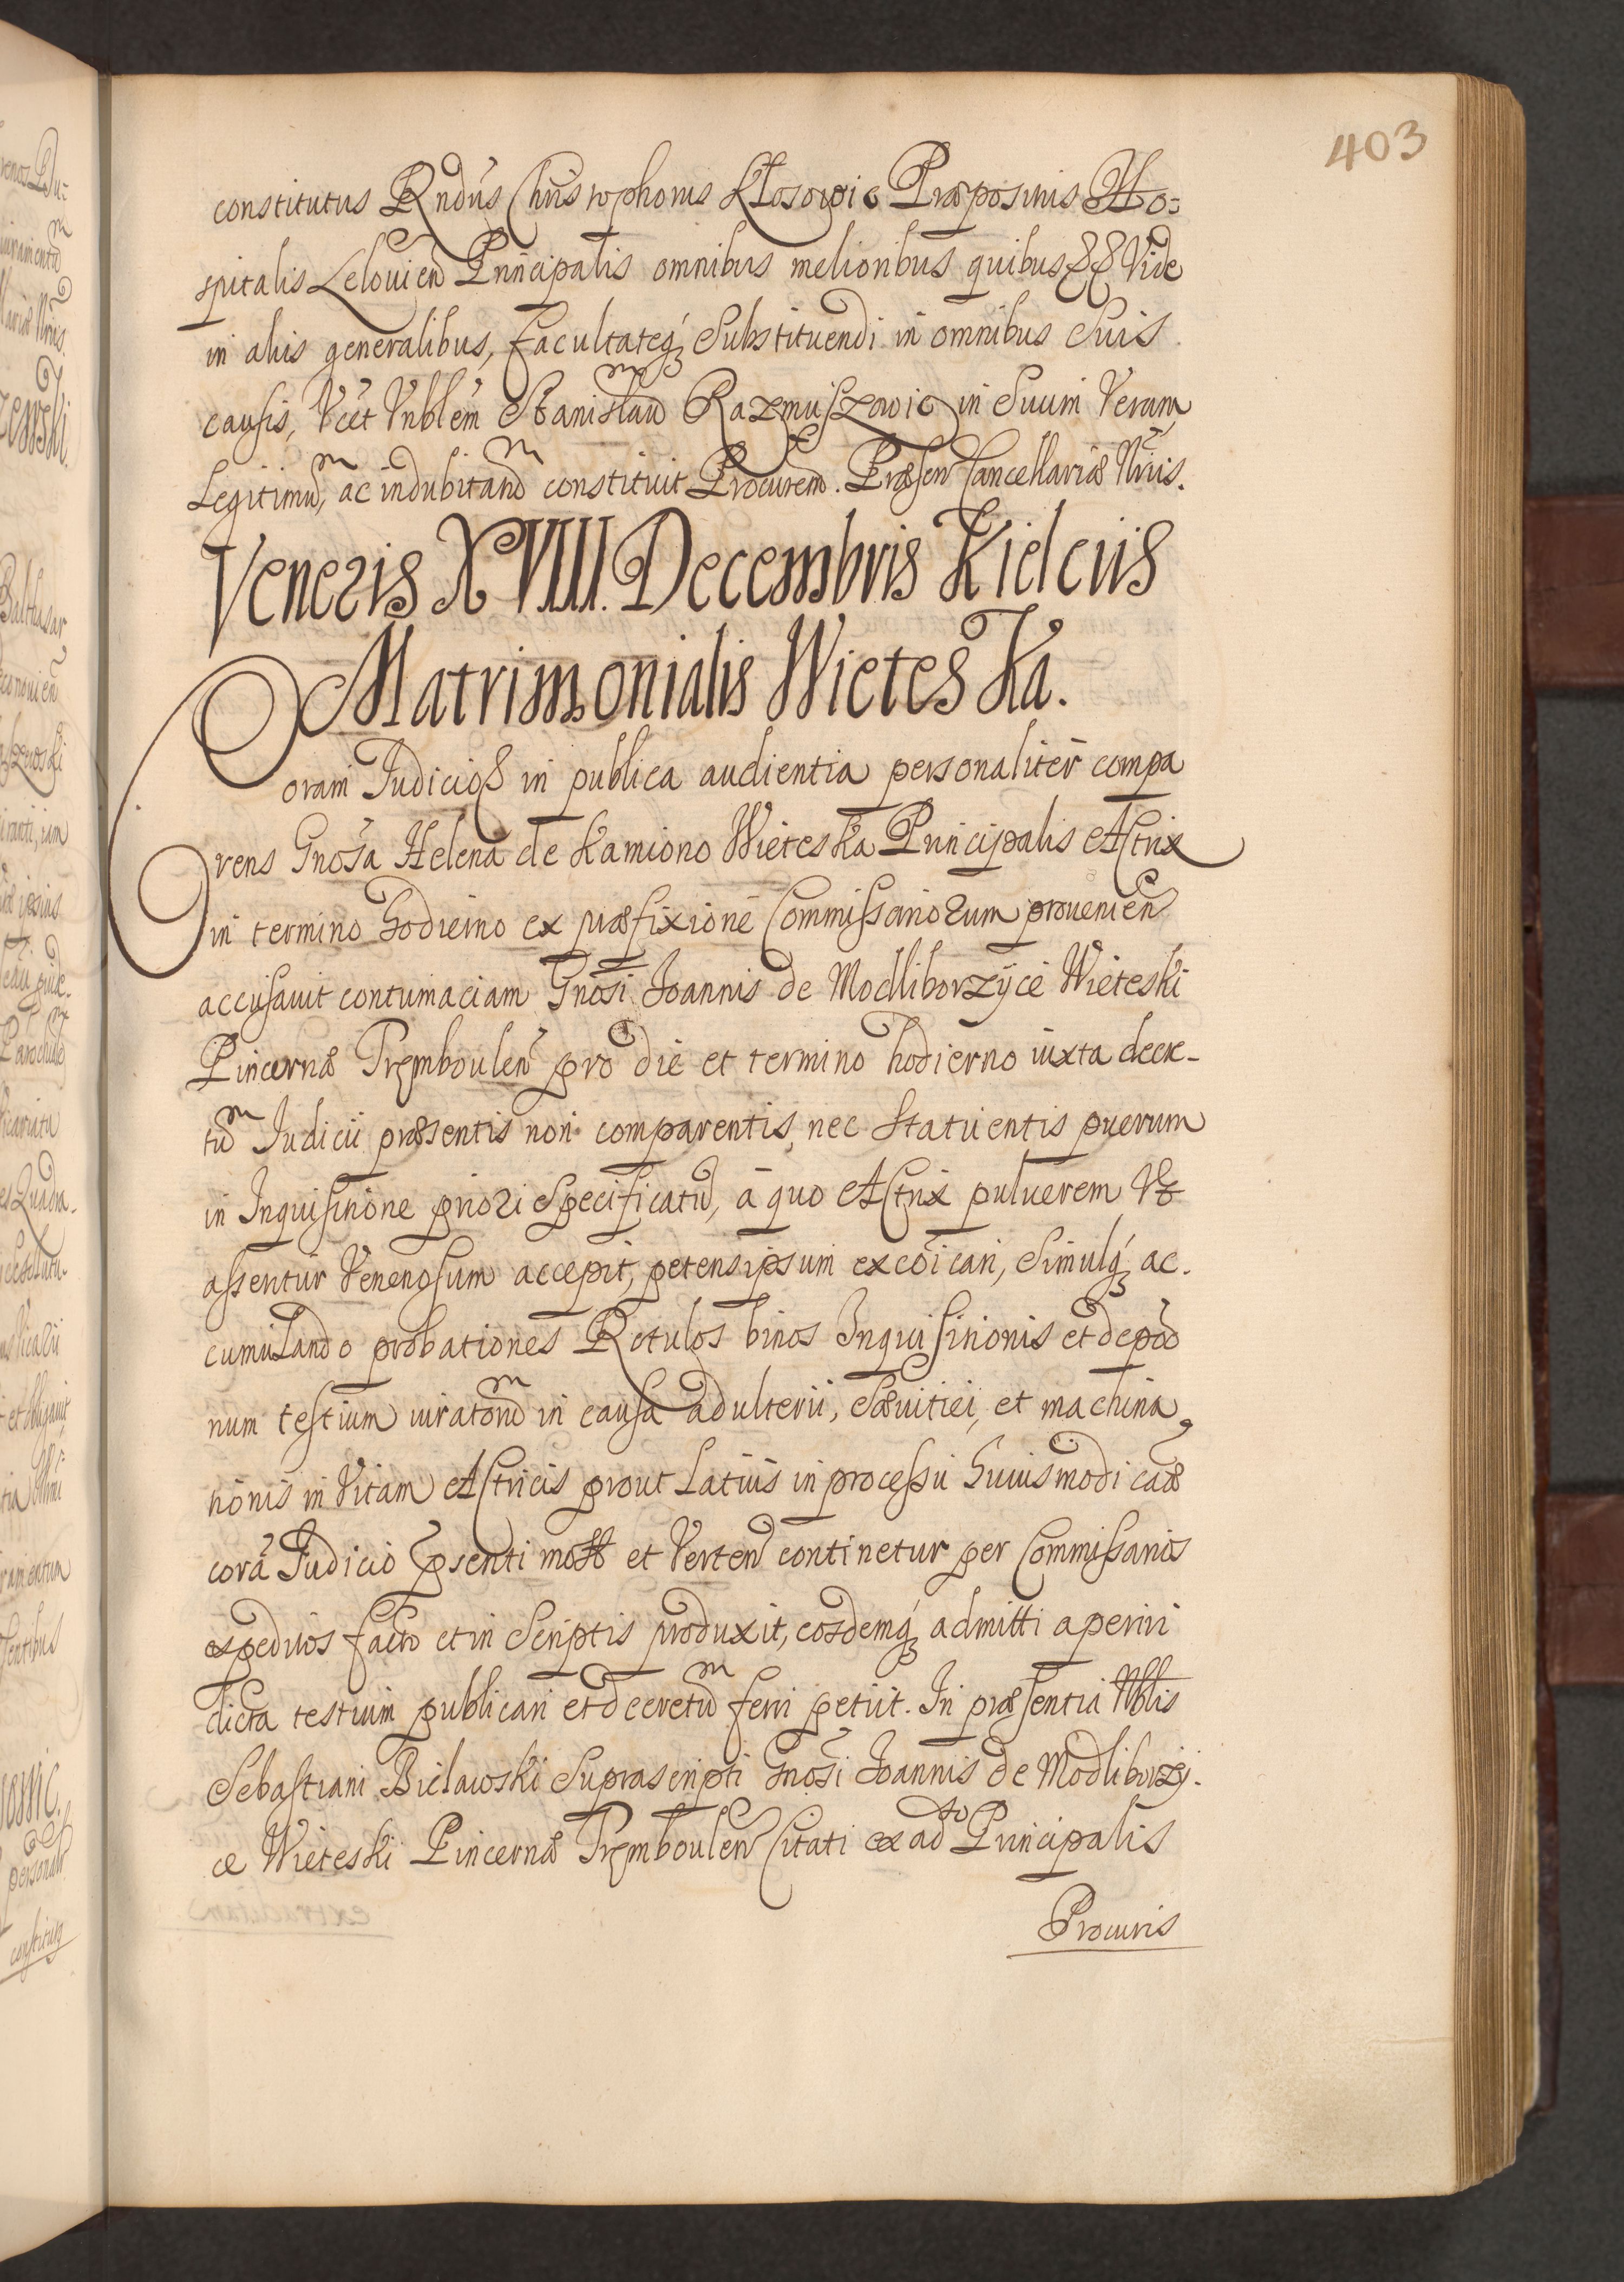 403
constitutus Rndus Christophorus Kłosowic Præpositus Ho=
spitalis Lelovien Principalis omnibus melioribus quibus Vide
in aliis generalibus, facultateq; Substituendi in omnibus Suis
causis, Vtt Vnblem Stanislaum Razmuszowic in Suum Verum
Legitimum, ac indubitatum constituit Procurem. Præsen Cancellariæ Nriis.
Veneris XVIII. Decembris Kielciis
Matrimonialis Wieteska.
Coram Judicio in publica audientia personaliter compa
rens Gnosa Helena de Kamiono Wieteska Principalis Actrix
in termino Hodierno ex præfixione Commissariorum provenien
accusavit contumaciam Gnosi Joannis de Modliborzyce Wieteski
Pincernæ Trembovlen pro die et termino hodierno iuxta decre-
tum Judicii præsentis non comparentis, nec Statuentis puerum
in Inquisitione priori Specificatum, a quo Actrix pulverem Vt
assentur Venenosum accepit, petens ipsum excoicari, Simulq; ac-
cumulando probationes Rotulos binos Inquisitionis et depo
num testium iuratorum in causa adulterii, Sævitiei, et machina
tionis in Vitam Actricis prout Latius in processu Huiusmodi caæ
cora Judicio psenti mott et Verten continetur per Commissarios
expeditos facto et in Scriptis produxit, eosdemq; admitti aperiri
dicta testium publicari et decretum ferri petiit. In præsentia Nblis
Sebastiani Bielawski Suprascripti Gnosi Joannis de Modliborzy-
ce Wieteski Pincernæ Trembovlen Citati ex adto Principalis
Procuris